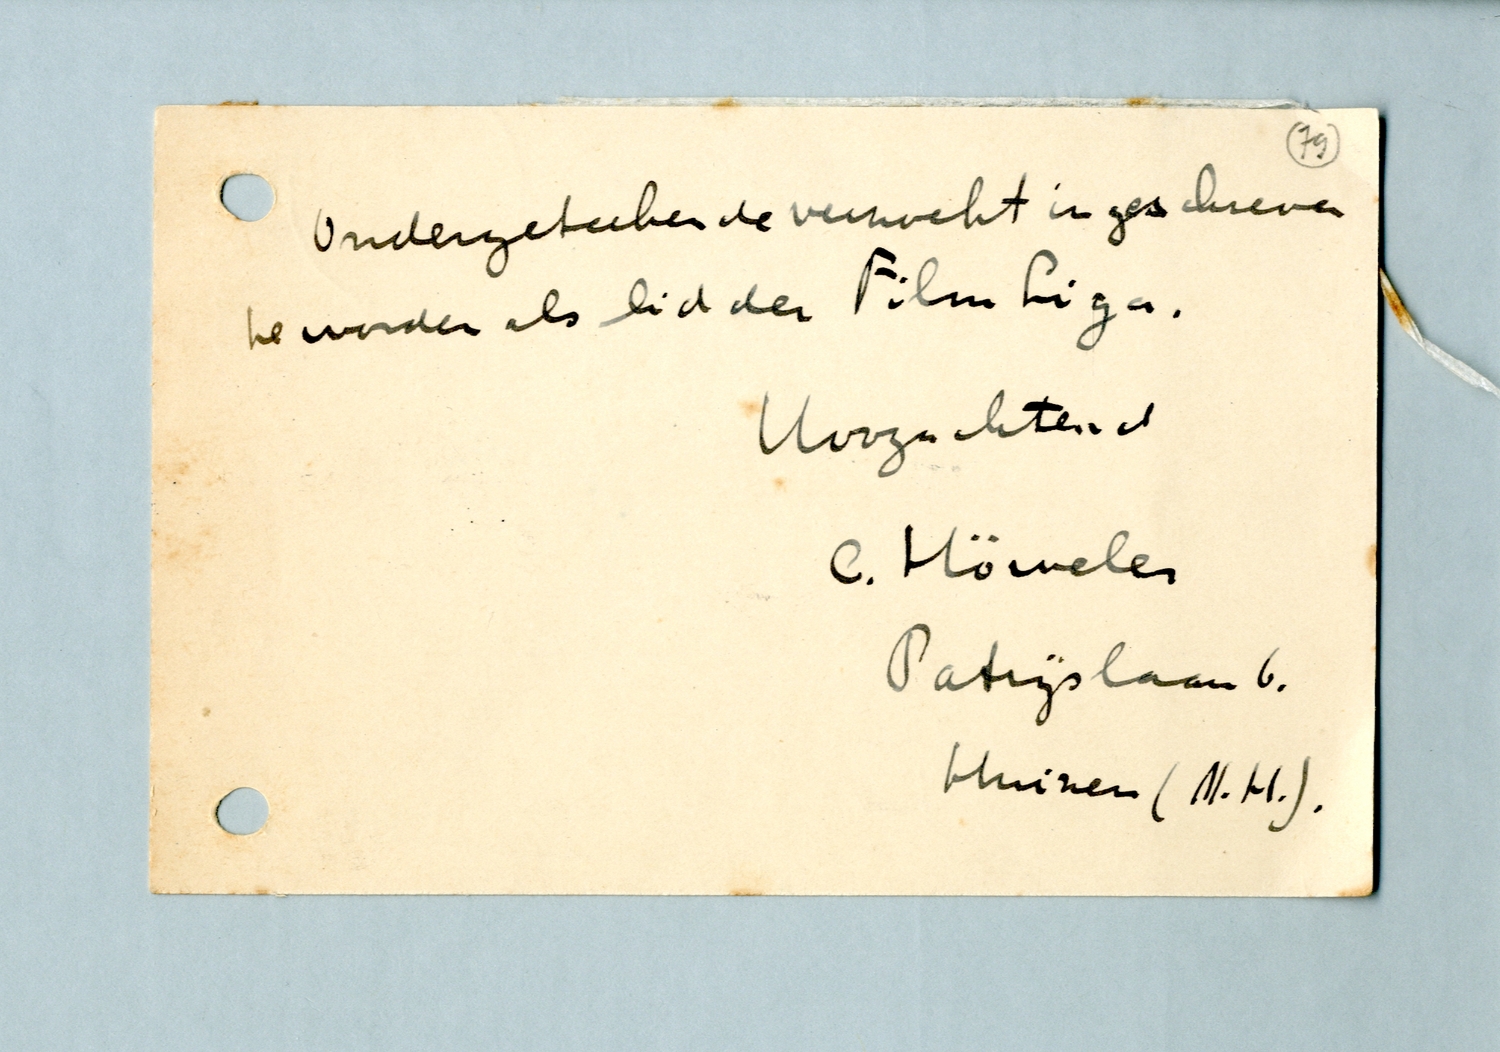 (79)
Ondergeteekende verzoekt ingeschreven
te worden als lid der Film Liga.
Hoogachtend
C. Höweler
Patrijslaan 6.
Huizen (N.H.).